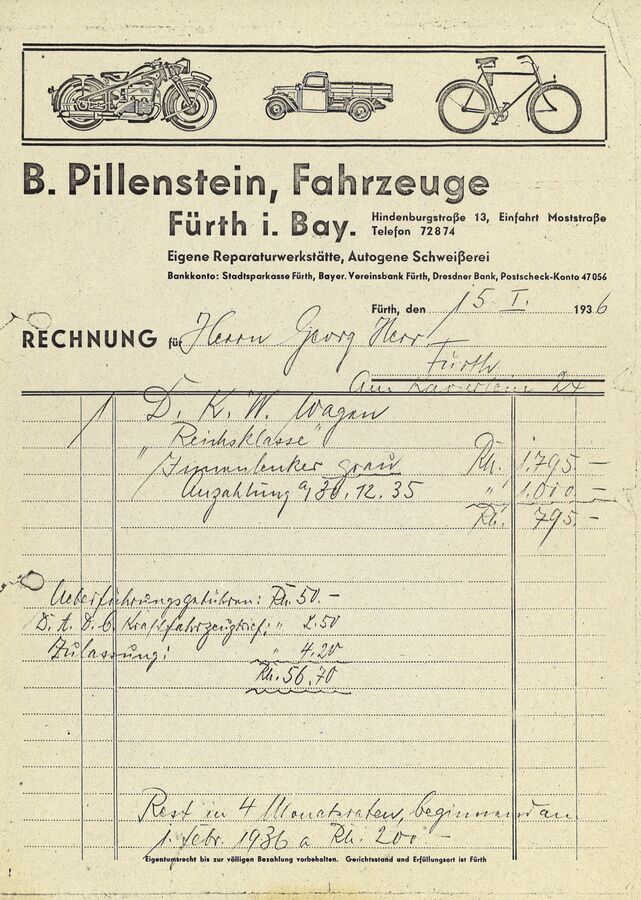 B. Pillenstein, Fahrzeuge
Fürth i. Bay.
Hindenburgstraße 13, Einfahrt Moststraße
Telefon 72874
Eigene Reparaturwerkstätte, Autogene Schweißerei
Bankkonto: Stadtsparkasse Fürth, Bayer. Vereinsbank Fürth, Dresdner Bank, Postscheck-Konto 47056
Fürth, den 15. I. 1936
RECHNUNG für Herrn Georg Herr
Fürth
Am 24
1 D. K. W. Wagen
"Reichsklasse"
Innenlenker grau Rℳ. 1.795 –
Anzahlung a/ 30.12.35 " 1.000 –
Rℳ. 795 –
Ueberführungsgebühren: Rℳ. 50. –
Kraftfahrzeugbrief: " 2.50
Zulassung: " 4.20
Rℳ. 56.70
Rest in 4 Monatsraten, beginnend am
1. Febr. 1936 a Rℳ. 200 –
Eigentumsrecht bis zur völligen Bezahlung vorbehalten. Gerichtsstand und Erfüllungsort ist Fürth